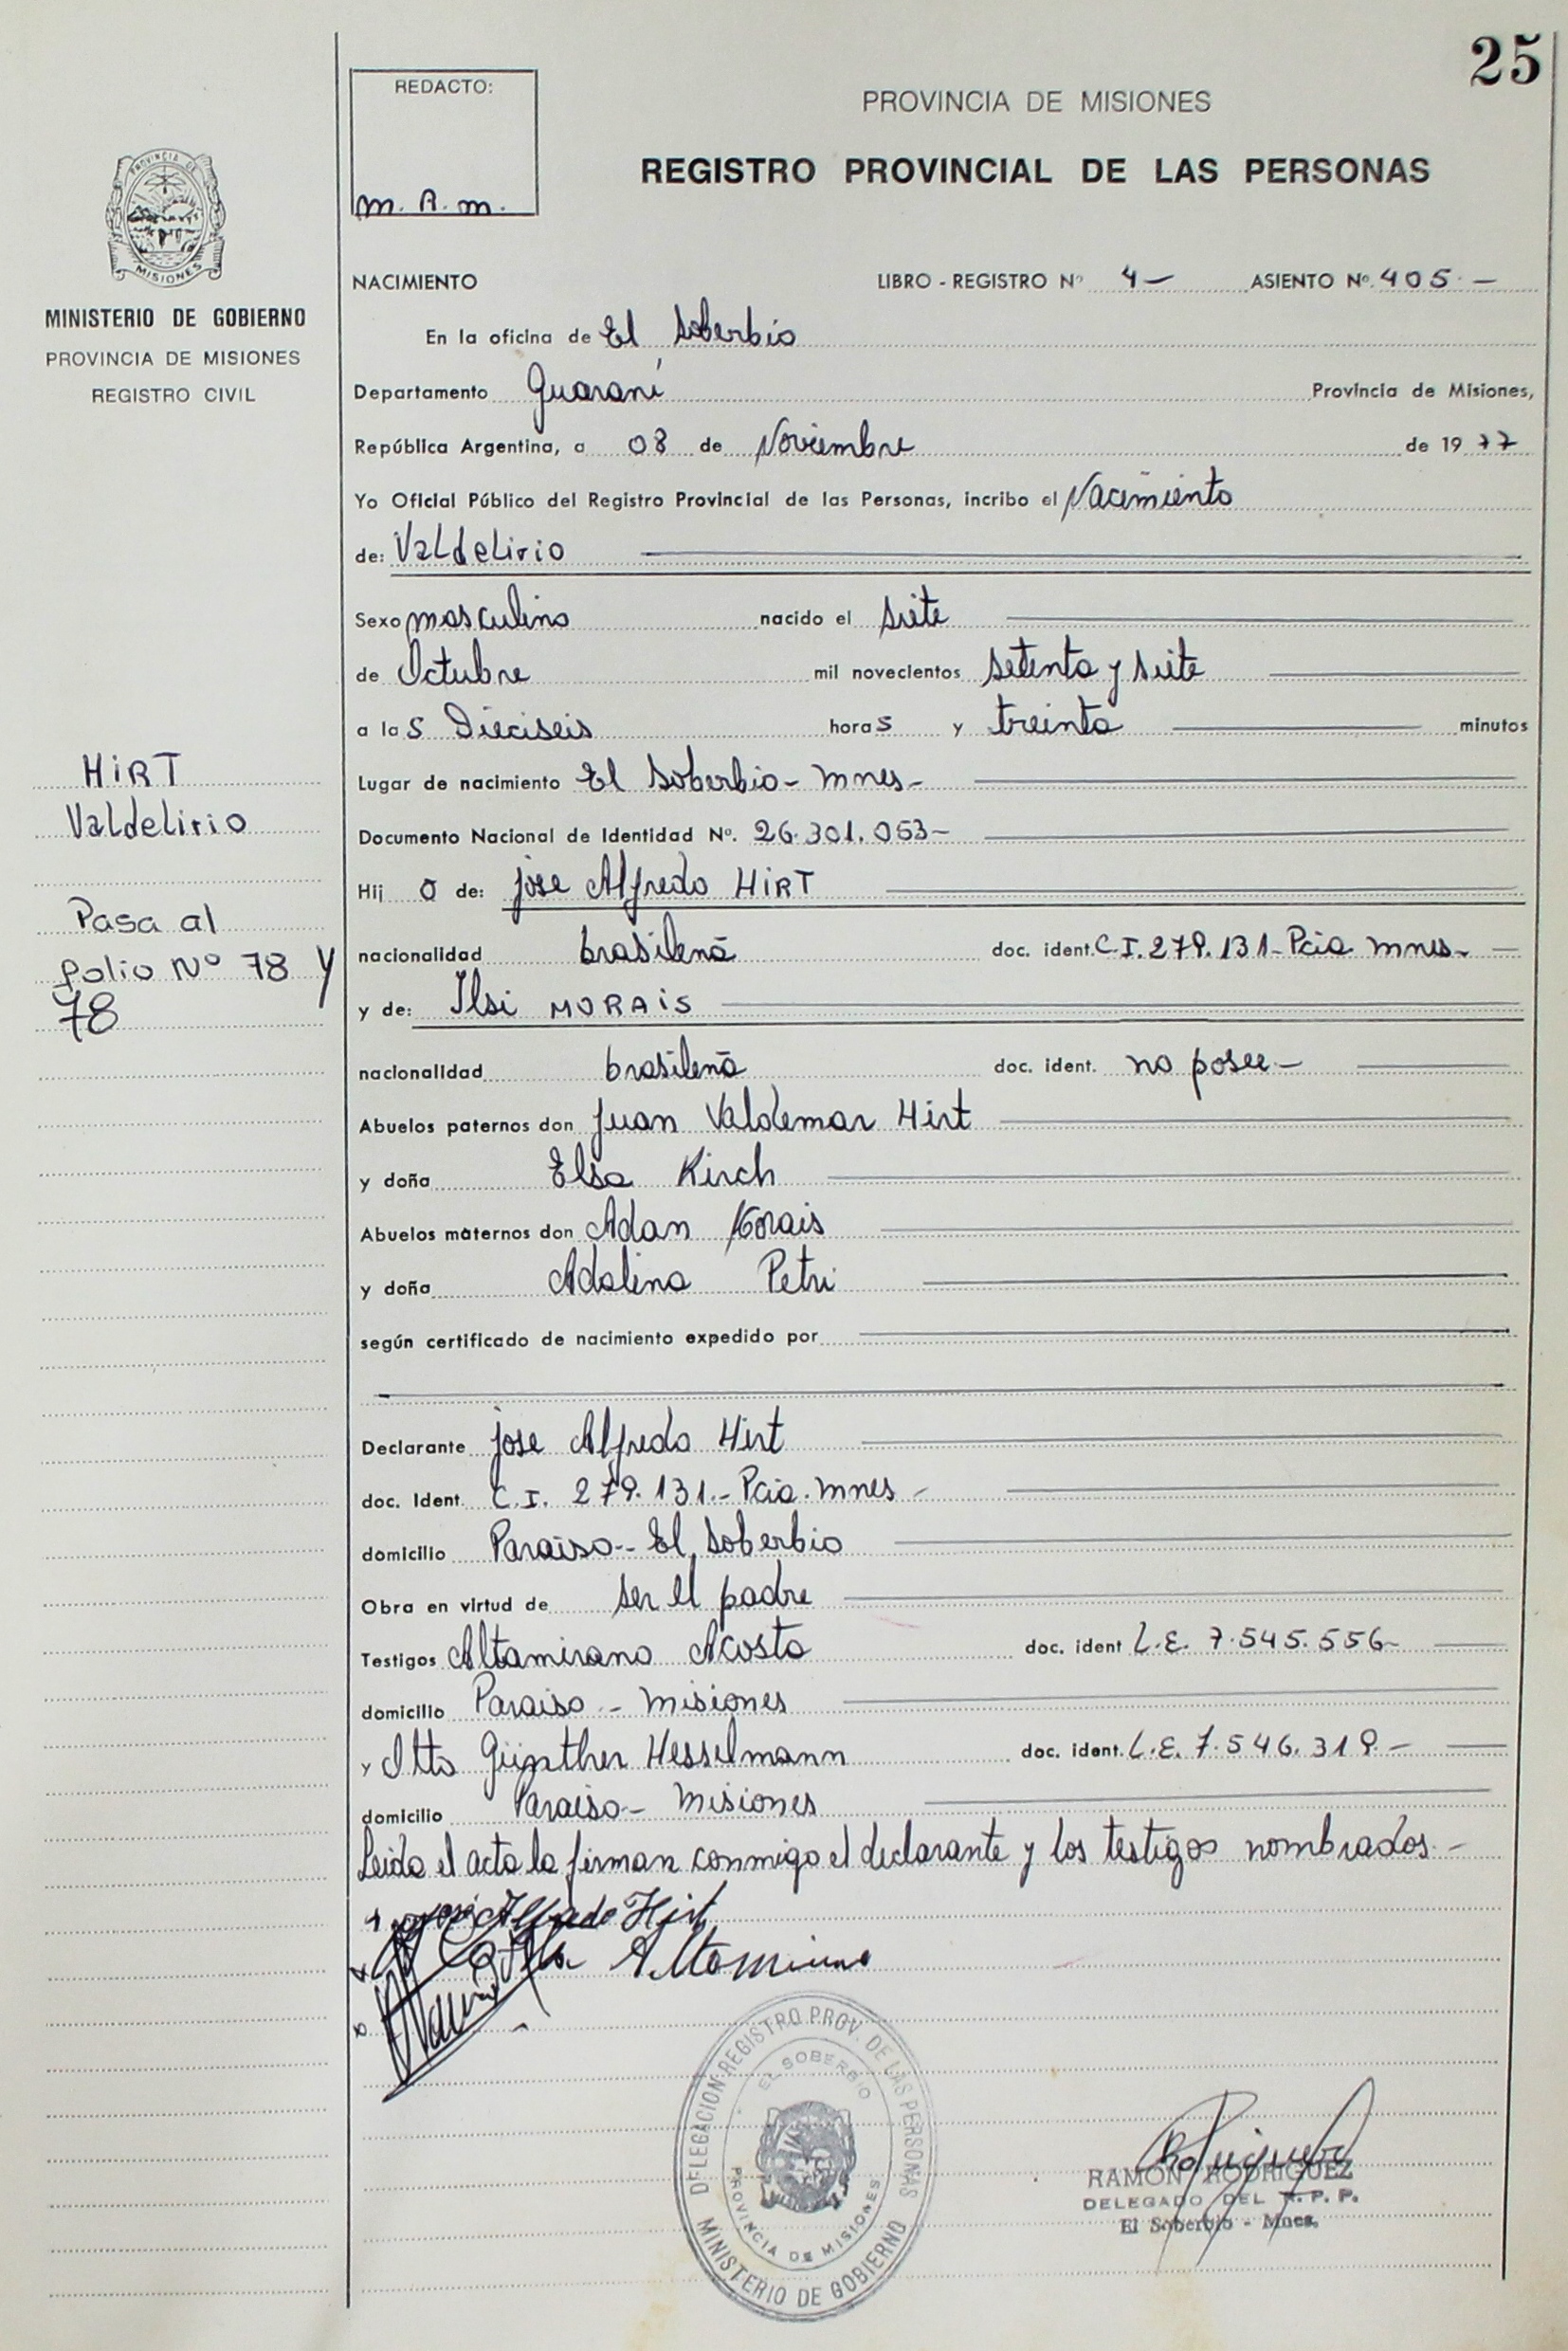 25
REDACTO:
m. A. m.
PROVINCIA DE MISIONES
REGISTRO PROVINCIAL DE LAS PERSONAS
PROVINCIA DE
MISIONES
MINISTERIO DE GOBIERNO
PROVINCIA DE MISIONES
REGISTRO CIVIL
NACIMIENTO LIBRO - REGISTRO Nº 4- ASIENTO Nº 405-
En la oficina de El Soberbio
Departamento Guaraní Provincia de Misiones,
República Argentina, a 08 de Noviembre de 1977
Yo Oficial Público del Registro Provincial de las Personas, incribo el Nacimiento
de: Valdelirio
Sexo masculino nacido el siete
de Octubre mil novecientos setenta y siete
a las Dieciseis horas y treinta minutos
HIRT
Valdelirio
Pasa al
folio Nº 78 y
78
Lugar de nacimiento El Soberbio - Mnes -
Documento Nacional de Identidad Nº. 26.301.053-
Hijo de: jose Alfredo HIRT
nacionalidad brasileña doc. ident. C.I. 279.131- Pcia Mnes-
y de: Ilsi MORAIS
nacionalidad brasileña doc. ident. no posee-
Abuelos paternos don Juan Valdemar Hirt
y doña Elsa Kirch
Abuelos maternos don Adan Morais
y doña Adalina Petri
según certificado de nacimiento expedido por
Declarante jose Alfredo Hirt
doc. Ident. C.I. 279.131.- Pcia. Mnes -
domicilio Paraiso-- El Soberbio
Obra en virtud de ser el padre
Testigos Altamirano Acosta doc. ident L.E. 7.545.556-
domicilio Paraiso -- Misiones
y Otto Günther Hesselmann doc. ident. L.E. 7.546.319.-
domicilio Paraiso- Misiones
Leida el acta la firman conmigo el declarante y los testigos nombrados.-
José Alfredo Hirt
DELEGACION REGISTRO PROV. DE LAS PERSONAS
EL SOBERBIO
PROVINCIA DE MISIONES
MINISTERIO DE GOBIERNO
RAMON RODRIGUEZ
DELEGADO DEL R. P. P.
El Soberbio - Mnes.